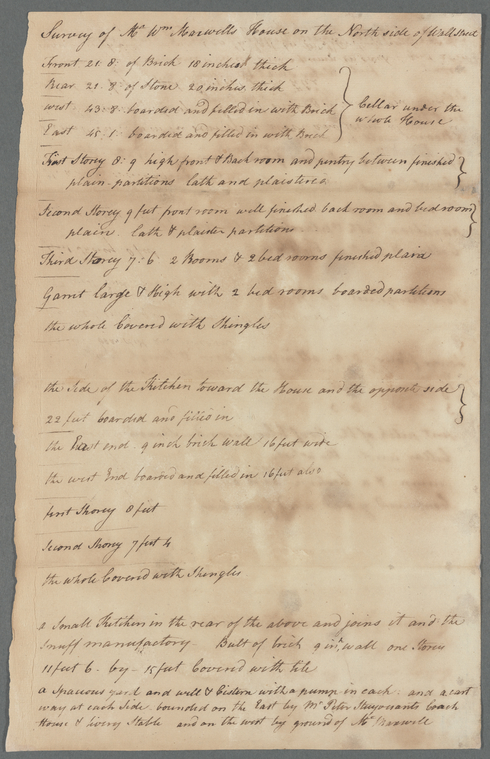 Survey of Mr Wm Maxwells House on the North side of Wall Street
Front 21: 8: of Brick 18 inches thick
Rear 21: 8: of Stone 20 inches thick
West 43: 8: boarded and filled in with Brick
East 45: 1: boarded and filled in with Brick
Cellar under the
whole House
First Storey 8: 9 high front & Back room and pentry between finished
plain partitions lath and plaistered
Second Storey 9 feet front room well finished back room and bed room
plain lath & plaister partitions
Third Storey 7: 6 2 Rooms & 2 bed rooms finished plain
Garret Large & High with 2 bed rooms boarded partitions
the whole Covered with Shingles
the Side of the Kitchen toward the House and the opposit side
22 feet boarded and filled in
the East end 9 inch brick wall 16 feet wide
the west End boarded and filled in 16 feet also
first Storey 8 feet
Second Storey 7 feet 4
the whole Covered with Shingles
a Small Kitchen in the rear of the above and joins it and the
Snuff manufactory Bult of brick 9 inh wall one Storey
11 feet 6 - by - 15 feet Covered with tile
a Spacious yard and well & Cistern with a pump in each: and a cart
way at each Side bounded on the East by Mr Peter Stuyvesants Coach
House & livery Stable and on the west by ground of Mr Maxwell